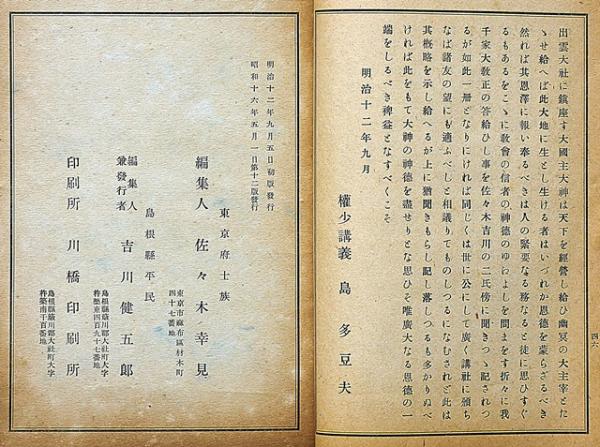 出雲大社に鎭座す大國主大神は天下を經營し給ひ幽冥の大主宰とた
ゝせ給へば此大地に生とし生ける者はいづれか恩德を蒙らざるべき
然れば其恩澤に報い奉るべきは人の緊要なる務なると徒に思ひすぐ
るもあるをこゝに敎會の信者の神德のゆゑよしを問まをす折々に我
千家大敎正の答給ひし事を佐々木吉川の二氏傍に聞きつゝ記されつ
るが如此一册となりにければ同じくは世に公にして廣く講社に頒ち
なば諸友の望にも適ふべしと相議りてものしつるになむされど此は
其概略を示し給へるが上に猶聞きもらし記し落しつるも多かりぬべ
ければ此をもて大神の神德を盡せりとな思ひそ唯廣大なる恩德の一
端をしるべき裨益となすべくこそ
明治十二年九月
權少講義 島多豆夫
四六
明治十二年九月五日初版發行
昭和十六年五月一日第十二版發行
東京府士族
編集人 佐々木幸見
東京市麻布區材木町
四十七番地
島根縣平民
編集人
兼發行者 吉川健五郎
島根縣簸川郡大社町大字
杵築東四百九十七番地
印刷所 川橋印刷所
島根縣簸川郡大社町大字
杵築南千百番地